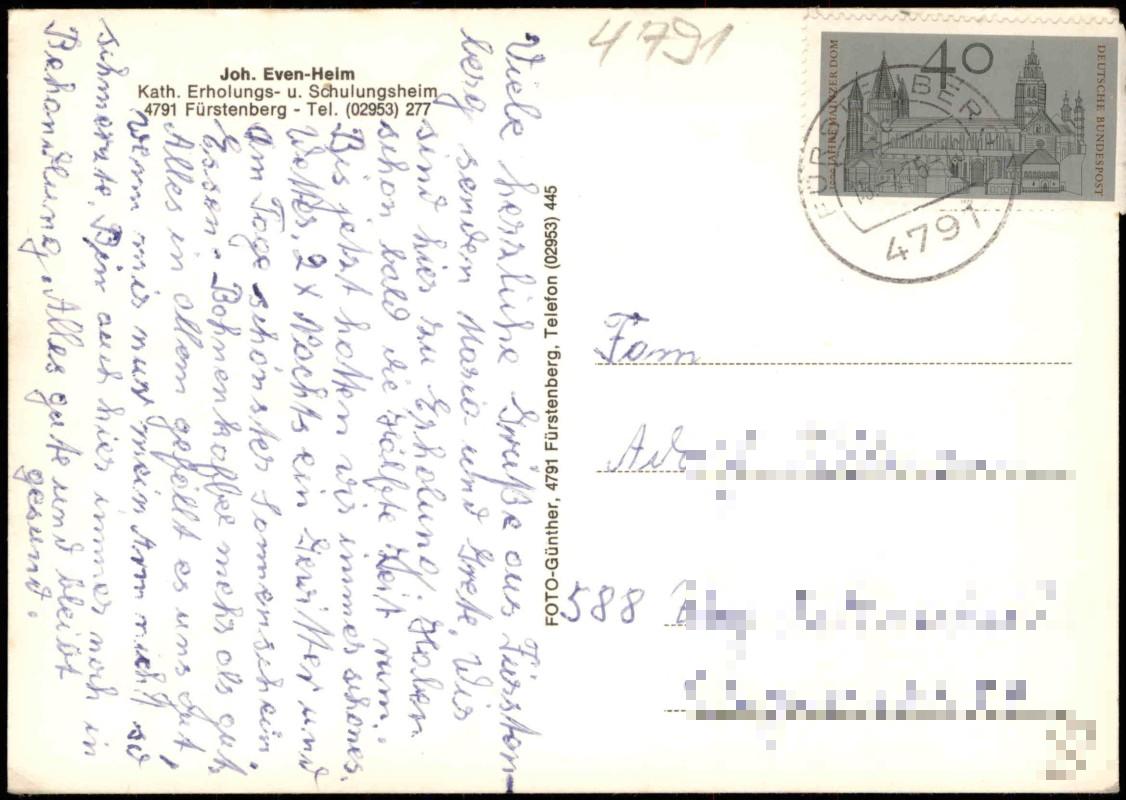 Joh. Even-Heim
Kath. Erholungs- u. Schulungsheim
4791 Fürstenberg - Tel. (02953) 277
Viele herzliche Grüße aus Fürsten-
berg senden Maria und Grete. Wir
sind hier zu Erholung. Haben
schon bald die Hälfte Zeit rum.
Bis jetzt hatten wir immer schönes
Wetter. 2 x Nachts ein Gewitter und
am Tage schönster Sonnenschein.
Essen - Bohnenkaffee mehr als gut.
Alles in allem gefällt es uns gut,
wenn mir nur mein Arm nicht so
schmerzte. Bin auch hier immer noch in
Behandlung. Alles gute und bleibt
gesund.
FOTO-Günther, 4791 Fürstenberg, Telefon (02953) 445
4791
40
1000 JAHRE MAINZER DOM
DEUTSCHE BUNDESPOST
FÜRSTENBERG
4791
Fam
588